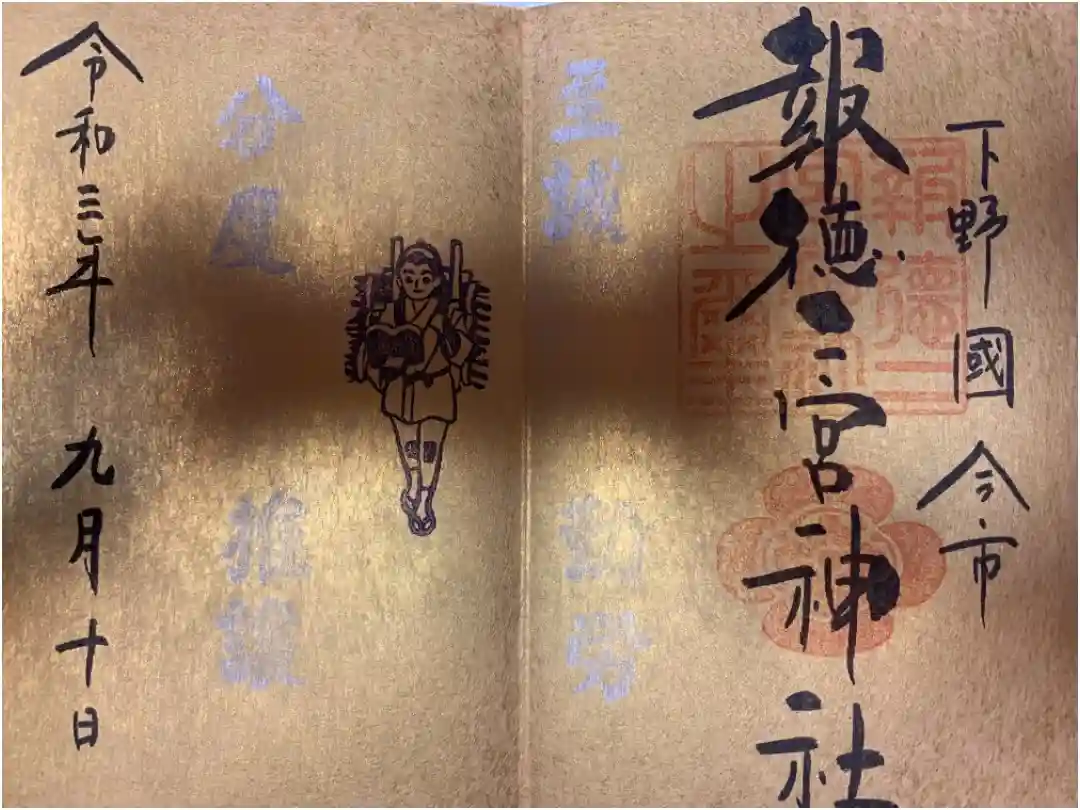 下野國 今市
報徳二宮神社
至誠
勤労
分度
推譲
令和三年 九月十日